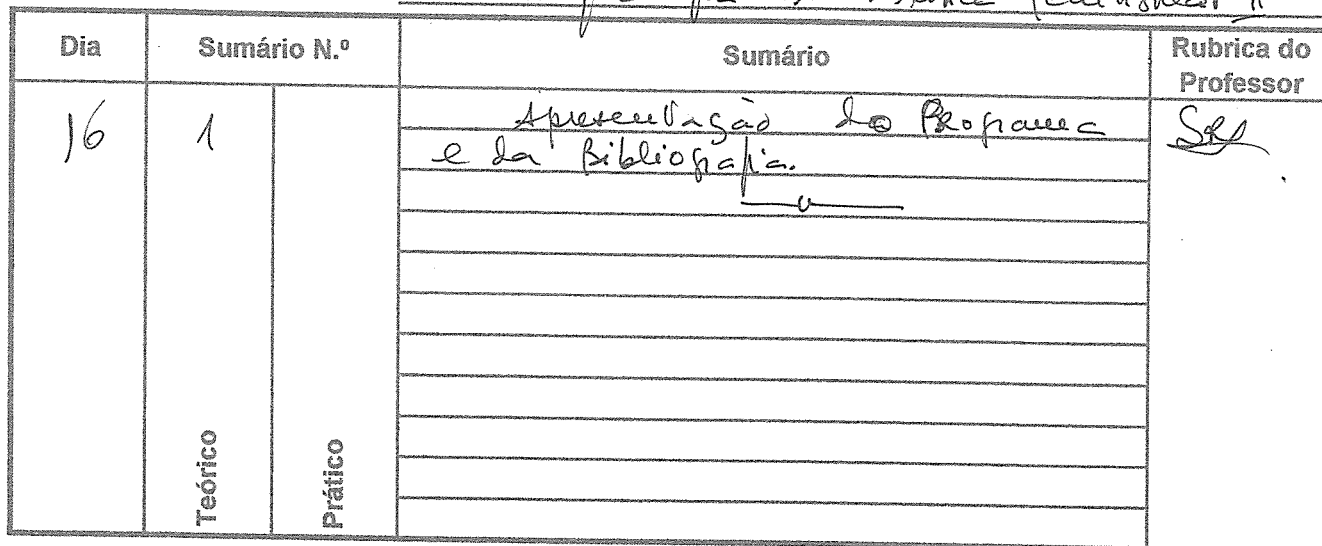 Dia
Sumário N.º
Sumário
Rubrica do
Professor
16
1
Apresentação do Programa
e da Bibliografia.
Teórico
Prático